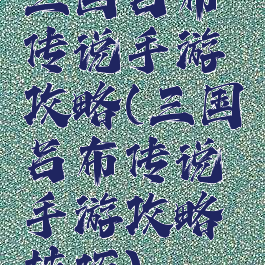 三国吕布
传说手游
攻略(三国
吕布传说
手游攻略